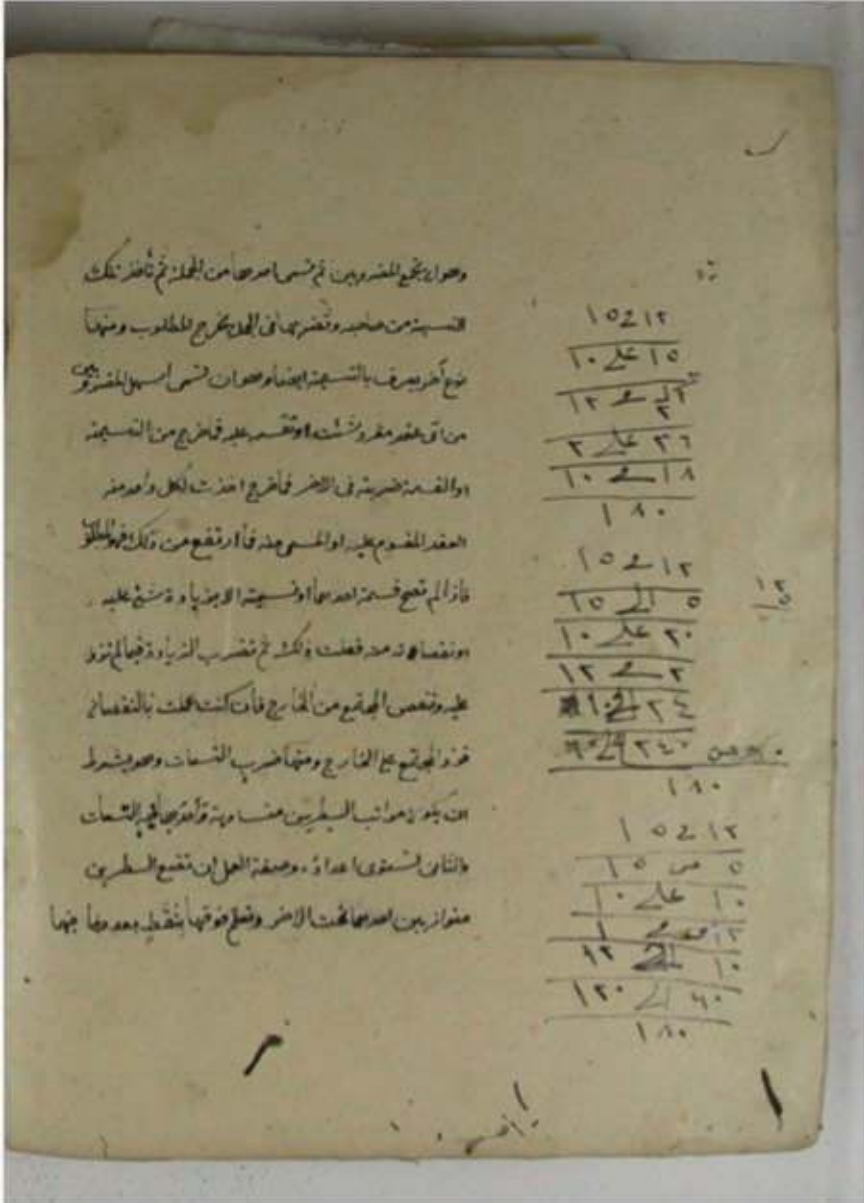 وهو ان يجمع المضروبين ثم تسمى احدهما من الجملة ثم تأخذ تلك
النسبة من صاحبه وتضربها في الجملة يخرج المطلوب ومنها
نوع آخر يعرف بالنسبة ايضا وهو ان تسمى اسهل المضروبين
من اى عقد مفرد شئت او تقسمه عليه فما خرج من التسمية
او القسمة ضربته في الاخر فما خرج اخذت لكل واحد منه
العقد المقسوم عليه او المسمى منه فما ارتفع من ذلك فهو المطلوب
فاذا لم تصح قسمة احدهما او نسبته الا بزيادة شئ عليه
او نقصانه منه فعلت ذلك ثم تضرب الزيادة فيما لم تزد
عليه وتنقص المجتمع من الخارج فان كنت عملت بالنقصان
فزد المجتمع على الخارج ومنها ضرب التسعات وهو بشرط
ان يكون مراتب السطرين متساوية واحدهما
والثانى تستوى اعداده وصفة العمل ان تضع السطرين
متوازيين احدهما تحت الاخر وتعلم فوقهما بنقط بعدد ما فيهما
١٢ في ١٥
١٥ على ١٠
١٢
٣٦ على ٢
١٨ في ١٠
١٨٠
١٢ في ١٥
٥ الى ١٥
٢٠ على ١٠
٢ في ١٢
٢٤ في ١٠
٦٠ من ٢٤٠
١٨٠
١٢ في ١٥
٥ من ١٥
١٠ على ١٠
١٢ في ١
١٠ في ١٢
٦٠ الى ١٢٠
١٨٠